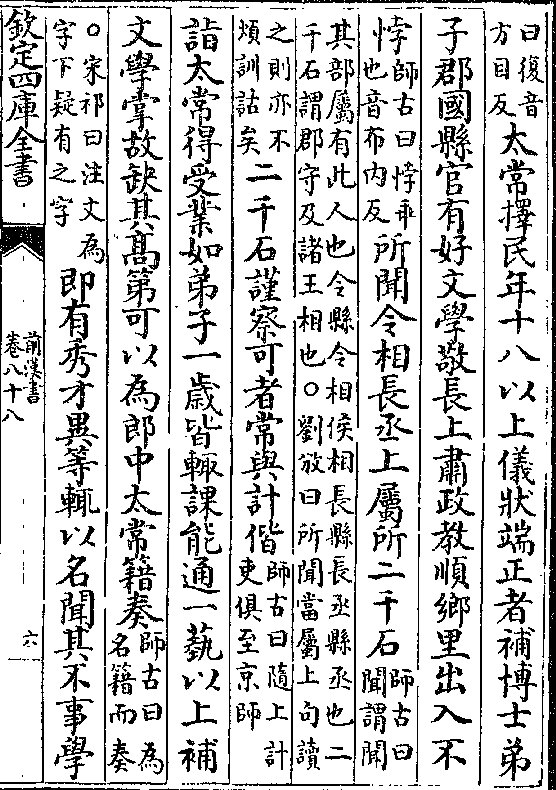 曰復音
方目反
太常擇民年十八以上儀狀端正者補博士弟
子郡國縣官有好文學敬長上肅政教順鄉里出入不
悖
師古曰悖乖
也音布内反
所聞令相長丞上屬所二千石
師古曰
聞謂聞
其部屬有此人也令縣令相侯相長縣長丞縣丞也二
千石謂郡守及諸王相也○劉攽曰所聞當屬上句讀
之則亦不
煩訓詁矣
二千石謹察可者常與計偕
師古曰隨上計
吏俱至京師
詣太常得受業如弟子一歲皆輙課能通一藝以上補
文學掌故缺其髙第可以為郎中太常籍奏
師古曰為
名籍而奏
○宋祁曰注文為
字下疑有之字
即有秀才異等輙以名聞其不事學
欽定四庫全書
前漢書
卷八十八
六